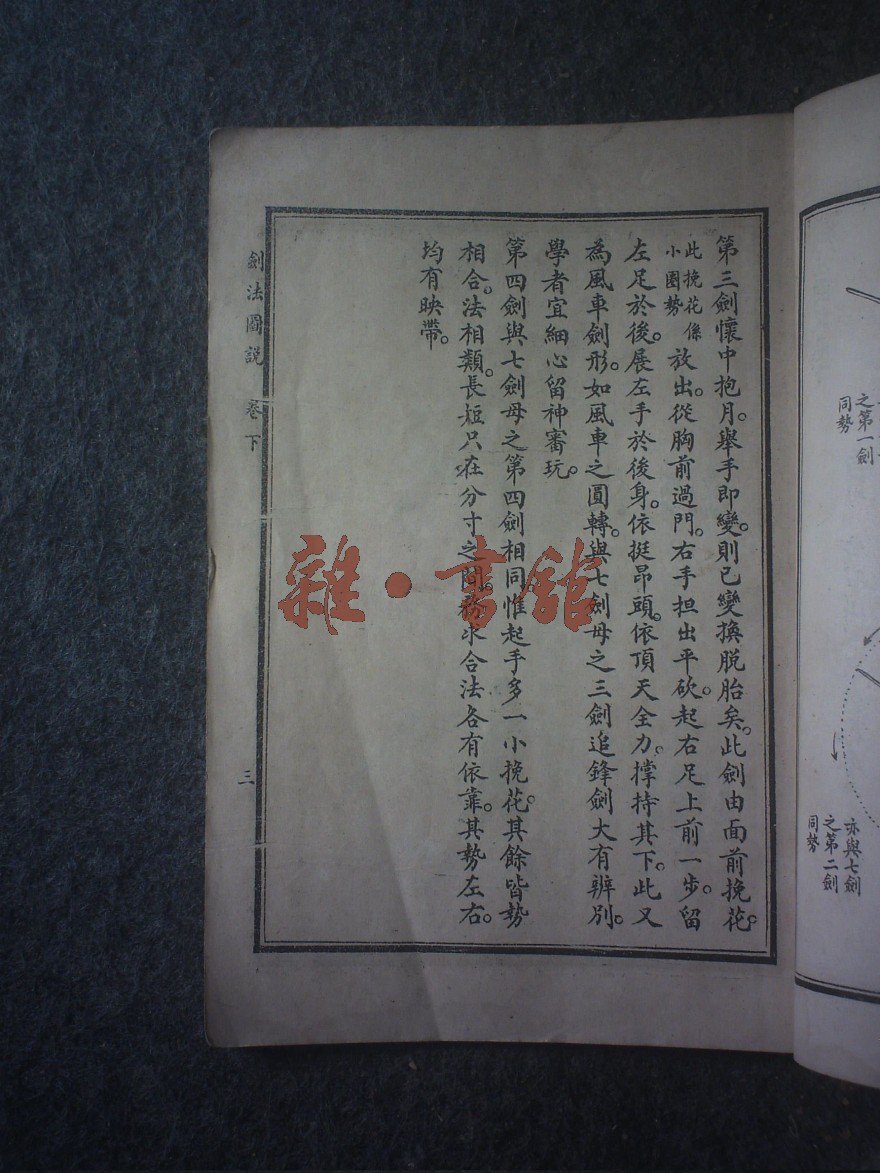 亦與七劍
之第二劍
同勢
之第一劍
同勢
第三劍懷中抱月。舉手即變。則已變換脫胎矣。此劍由面前挽花。
此挽花係
小圈勢
放出。從胸前過門。右手担出平砍。起右足上前一步。留
左足於後。展左手於後身。依挺昂頭。依頂天全力。撑持其下。此又
為風車劍形。如風車之圓轉。與七劍母之三劍追鋒劍大有辨別。
學者宜細心留神審玩。
第四劍與七劍母之第四劍相同。惟起手多一小挽花。其餘皆勢
相合。法相類。長短只在分寸之間。務求合法各有依靠。其勢左右。
均有映帶。
劍法圖説 卷下
三
雜·書館